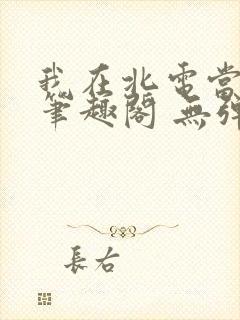 我在北電當
筆趣閣 無彈
長右